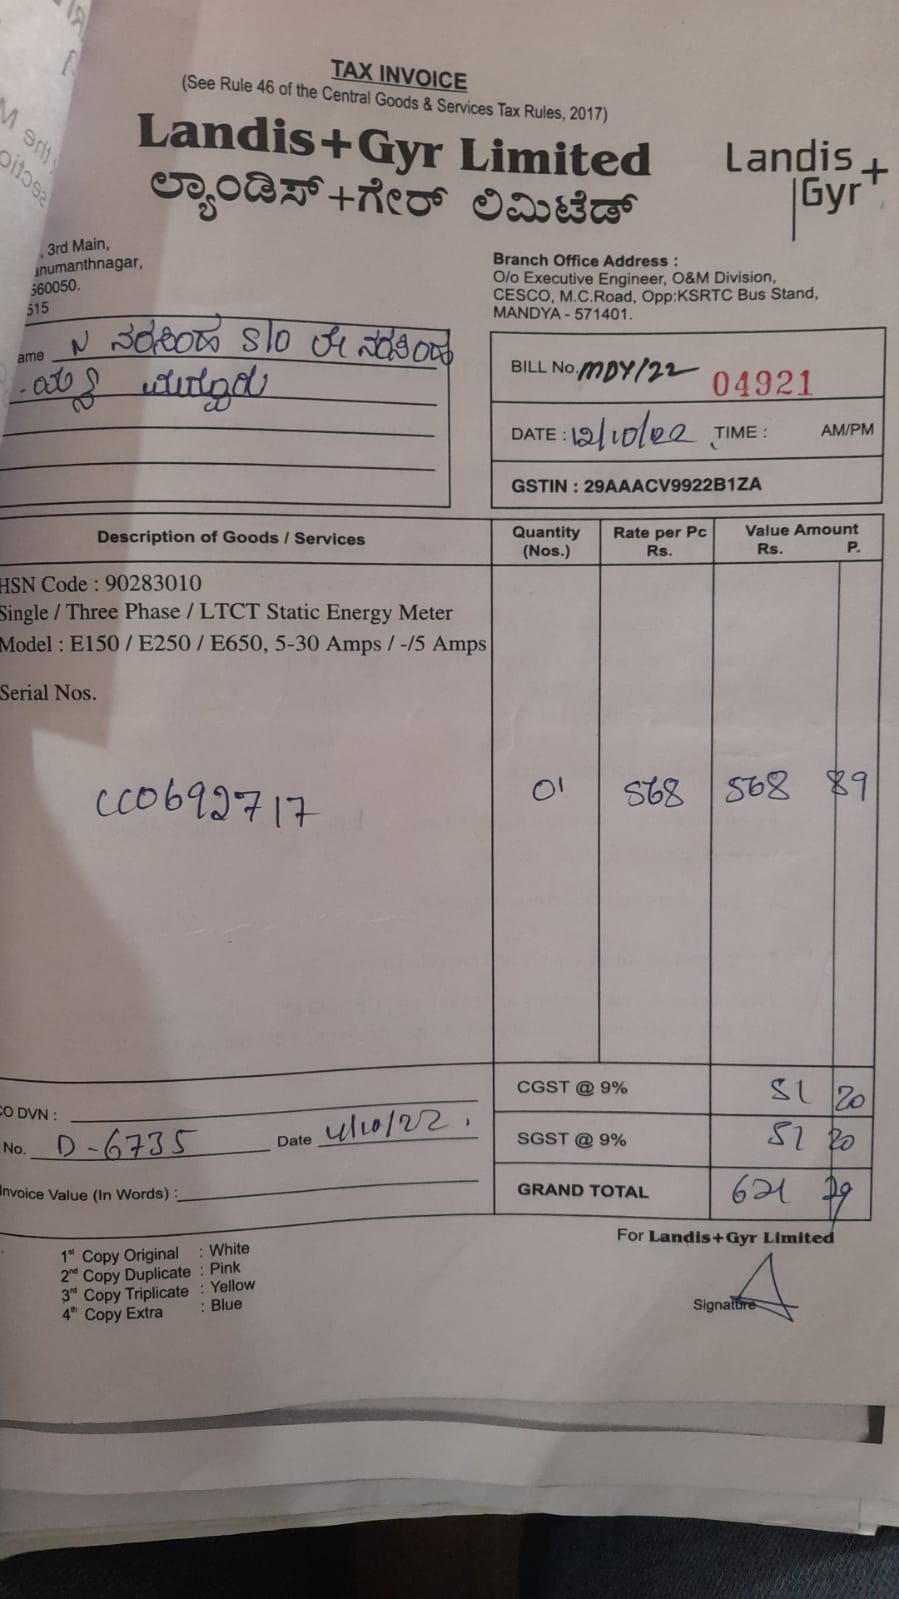 TAX INVOICE
(See Rule 46 of the Central Goods & Services Tax Rules, 2017)
Landis+Gyr Limited
ಲ್ಯಾಂಡಿಸ್+ಗೇರ್ ಲಿಮಿಟೆಡ್
Landis+
Gyr
, 3rd Main,
anumanthnagar,
560050.
515
Branch Office Address :
O/o Executive Engineer, O&M Division,
CESCO, M.C.Road, Opp:KSRTC Bus Stand,
MANDYA - 571401.
ame N ನರಸಿಂಹ S/o ಲೇ ನರಸಿಂಹ
BILL No. MDY/22 04921
DATE : 12/10/22 TIME : AM/PM
GSTIN : 29AAACV9922B1ZA
Description of Goods / Services Quantity (Nos.) Rate per Pc Rs. Value Amount Rs. P.
HSN Code : 90283010
Single / Three Phase / LTCT Static Energy Meter
Model : E150 / E250 / E650, 5-30 Amps / -/5 Amps
Serial Nos.
CC0692717 01 568 568 89
CGST @ 9% 51 20
CO DVN :
No. D-6735 Date /10/22.
SGST @ 9% 51 20
Invoice Value (In Words) :
GRAND TOTAL 671 29
For Landis+Gyr Limited
1st Copy Original : White
2nd Copy Duplicate : Pink
3rd Copy Triplicate : Yellow
4th Copy Extra : Blue
Signature